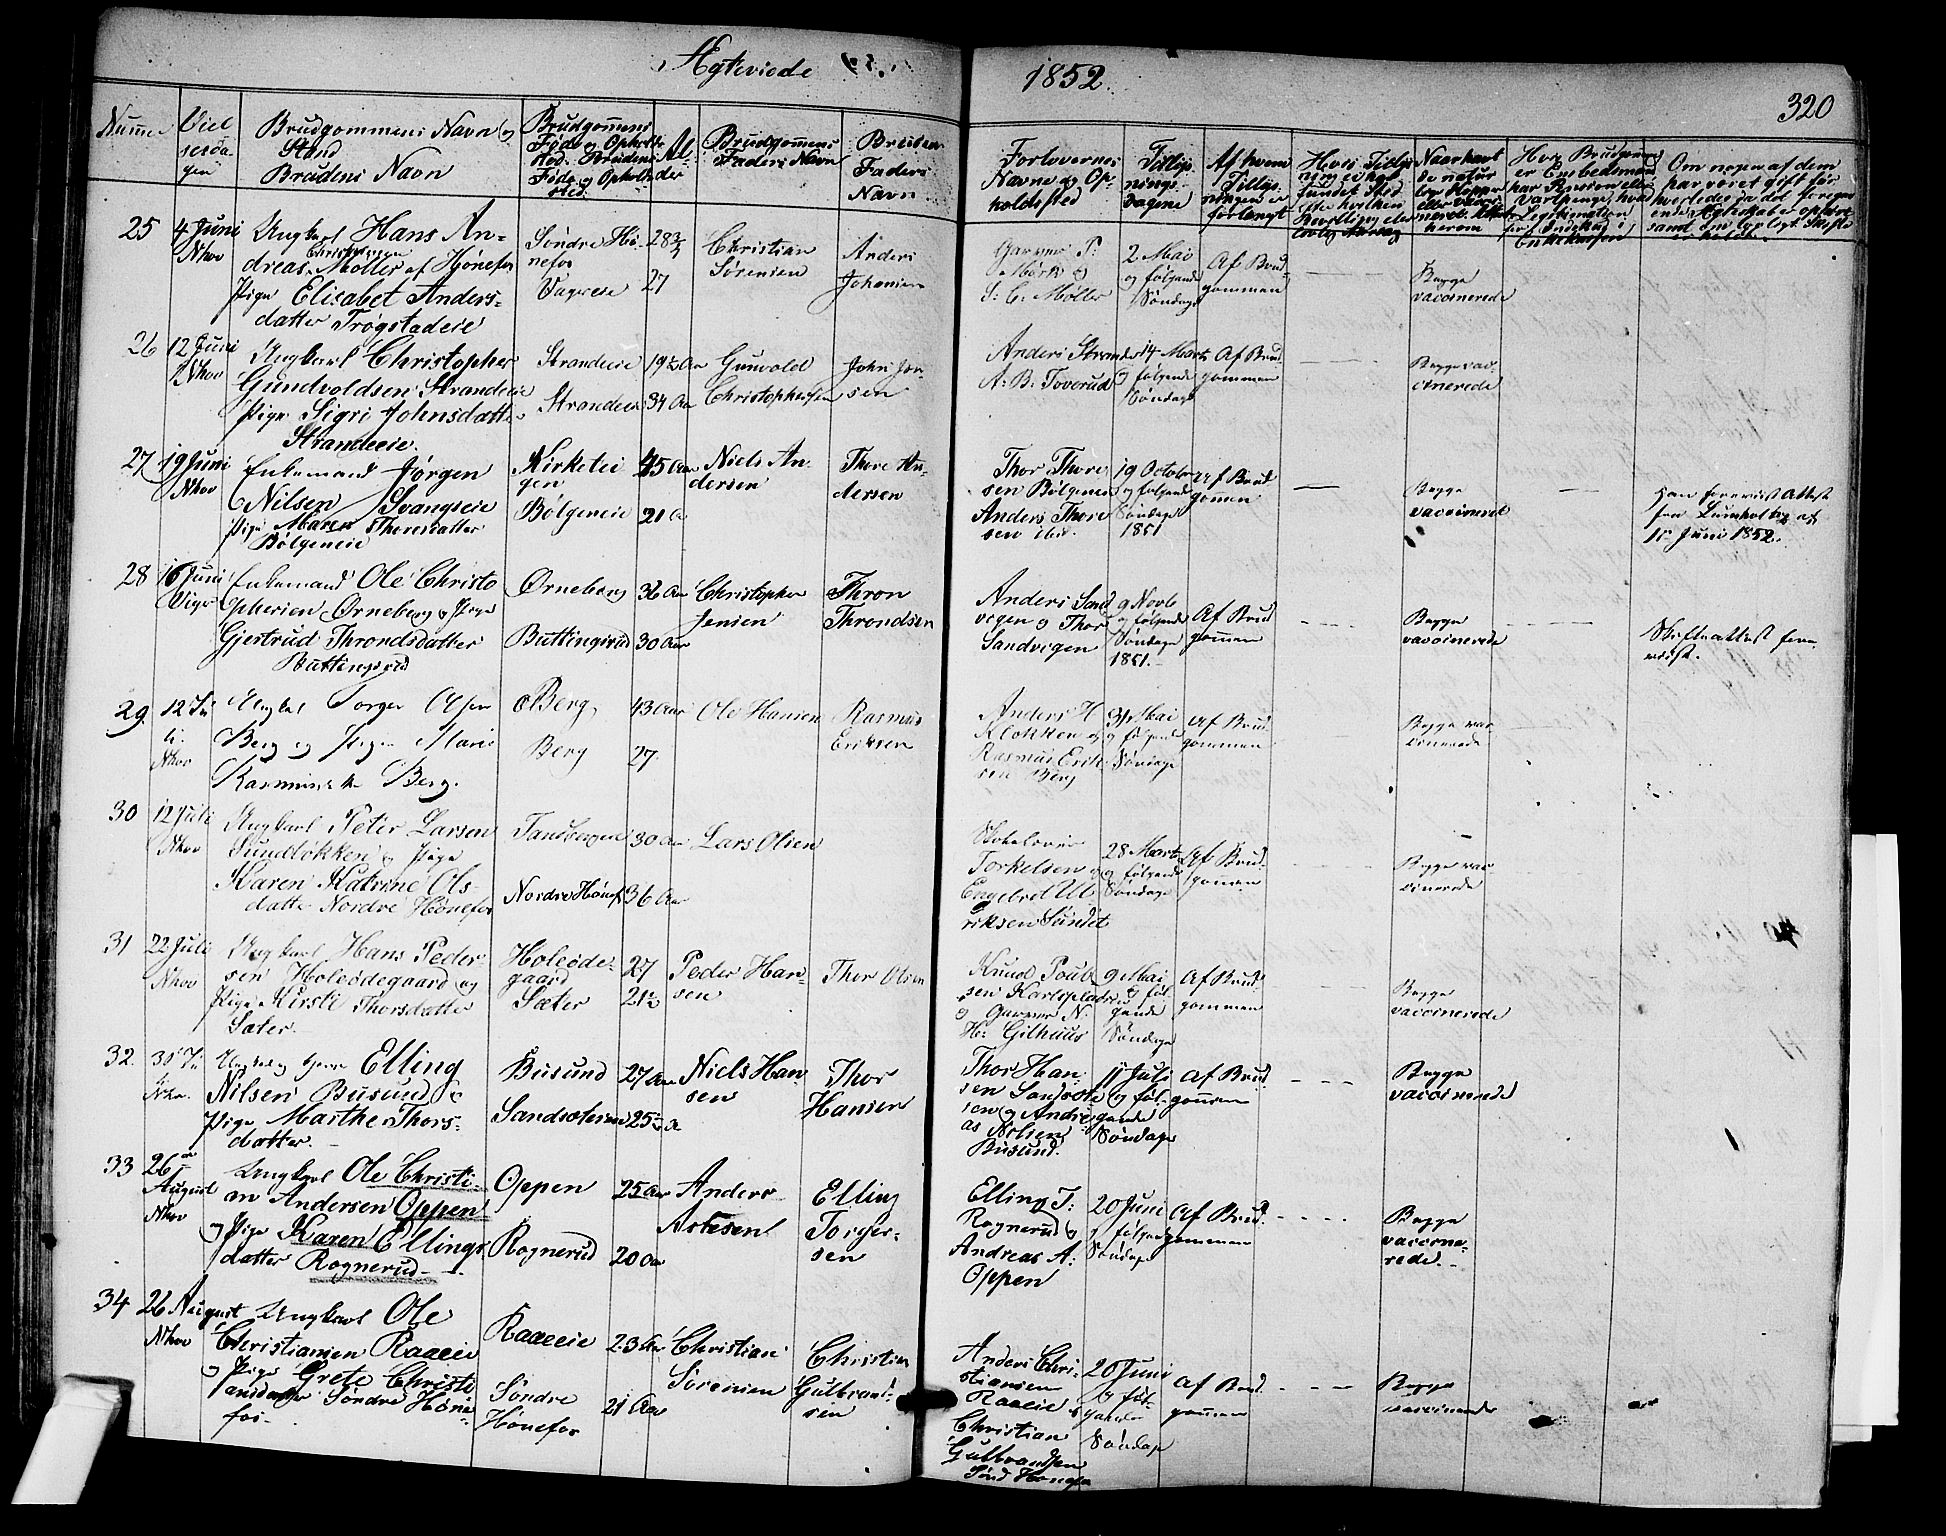 Ægteviede
1852.
320
Numer
Viel
sesda-
gen
Brudgommens Navn og
Stand
Brudens Navn
Brudgommens
Føde og Opholds
sted. Brudens
Føde og Opholds
sted
Al-
der
Brudgommens
Faders Navn
Brudens
Faders
Navn
Forlovernes
Navne og Op-
holdssted
Tillys
nings-
dagene
Af hvem
Tillys-
ningen er
forlangt
25
4 Juni
Nhov
Ungkarl Hans An-
dreas Christiansen
Møller af Hønefos
Pige Elisabet Anders-
datter Trøgstadeie
Søndre Hø-
nefos
28 3/4
27
Christian
Sørensen
Anders
Johansen
Garver P:
Mørk og
S: C: Møller
2 Mai
og følgende
Søndage
Af Brud-
gommen
Begge
vaccinerede
26
12 Juni
Nhov
Ungkarl Christopher
Gundvoldsen Strandeie
Pige Sigri Johnsdatter
Strandeeie.
Strandeie
Strandeie
19½ Aar
34 Aar
Gunvold
Christophersen
John Jon-
sen
Anders Strande
A: B: Toverud
14 Marts
og følgende
Søndage
Af Brud-
gommen
Begge vac-
cinerede
27
19 Juni
Nhov
Enkemand Jørgen
Nilsen Svangseie
Pige Maren Thoresdatter
Bølgeneie
Kirketei
gen
Bølgeneie
45 Aar
21 A
Niels An-
dersen
Thore An-
dersen
Thor Thore
sen Bølgeneie
Anders Thore
sen ibid.
19 October
og følgende
Søndage
1851
Af Brud
gommen
Begge
vaccinerede
Juni 1852.
28
16 Juni
Viger
Enkemand Ole Christo
phersen Ørneberg og Pige
Gjertrud Throndsdatter
Buttingsrud
Ørneberg
Buttingsrud
36 Aar
30 Aar
Christopher
Jensen
Thron
Throndsen
Anders Sand
vigen og Thor
Sandvigen
9 Novb
og følgende
Søndage
1851.
Af Brud
gommen
Begge
vaccinerede
Skifteattest fore
viist.
29
12 Ju
li.
Nhov
Ungkarl Torger Olsen
Berg og Pige Marie
Rasmusdatter Berg.
Berg
Berg
43 Aar
27
Ole Hansen
Rasmus
Eriksen
Anders H
Klokken og
Rasmus Erik
sen Berg
31 Mai
og følgende
Søndage
Af Brud
gommen
Begge vac
cinerede
30
12 Juli
Nhov
Ungkarl Peter Larsen
Sundløkken og Pige
Karen Katrine Ols-
datter Nordre Hønefos
Tandbergeie
Nordre Hønefos
30 Aar
36 Aar
Lars Olsen
Torkelsen og
Engebret Ul
riksen Sundet
28 Marts
og følgende
Søndage
Af Brud-
gommen
Begge vac
cinerede
31
22 Juli
Nhov
Ungkarl Hans Peder-
sen Holeødegaard og
Pige Kirsti Thorsdatter
Sæter.
Holeøde-
gaard
Sæter
27
21½
Peder Han-
sen
Thor Olsen
Knud Pouls
sen Karlsplads
og Garver N.
H: Gilhuus
9 Mai
og føl-
gende
Søndage
Af Brud-
gommen
Begge
vaccinerede
32.
30 Ju
li
Nhov.
Ungkarl Elling
Nilsen Busund og
Pige Marthe Thors-
datter.
Busund
27 Aar
25½
Niels Han-
sen
Thor
Hansen
Thor Han-
sen
og Andre-
as Nilsen
Busund.
11 Juli
og føl-
gende
Søndage
Af Brud
gommen
Begge
vaccinerede
33
26de
August
Nhov
Ungkarl Ole Christi-
an Andersen Oppen
og Pige Karen Ellings
datter Rognerud
Oppen
Rognerud
25 Aar
20 Aar
Anders
Arnesen
Elling
Torger-
sen
Elling T:
Rognerud og
Andreas A:
Oppen
20 Juni
og følgende
Søndage
Af Brud-
gommen
Begge
vaccine-
rede.
34
26 August
Nhov
Ungkarl Ole
Christiansen Raaeeie
og Pige Grete Christi
ansdatter Søndre Høne-
fos
Raaeeie
Søndre
Hønefos
23 Aar
21 Aar
Christian
Sørensen
Christian
Gulbrand-
sen
Anders Chri-
stiansen
Raaeeie og
Christian
Gulbrandsen
Sønd Hønefos
20 Juni
og føl-
gende
Søndage
Af Brud-
gommen
Begge
vaccinerede